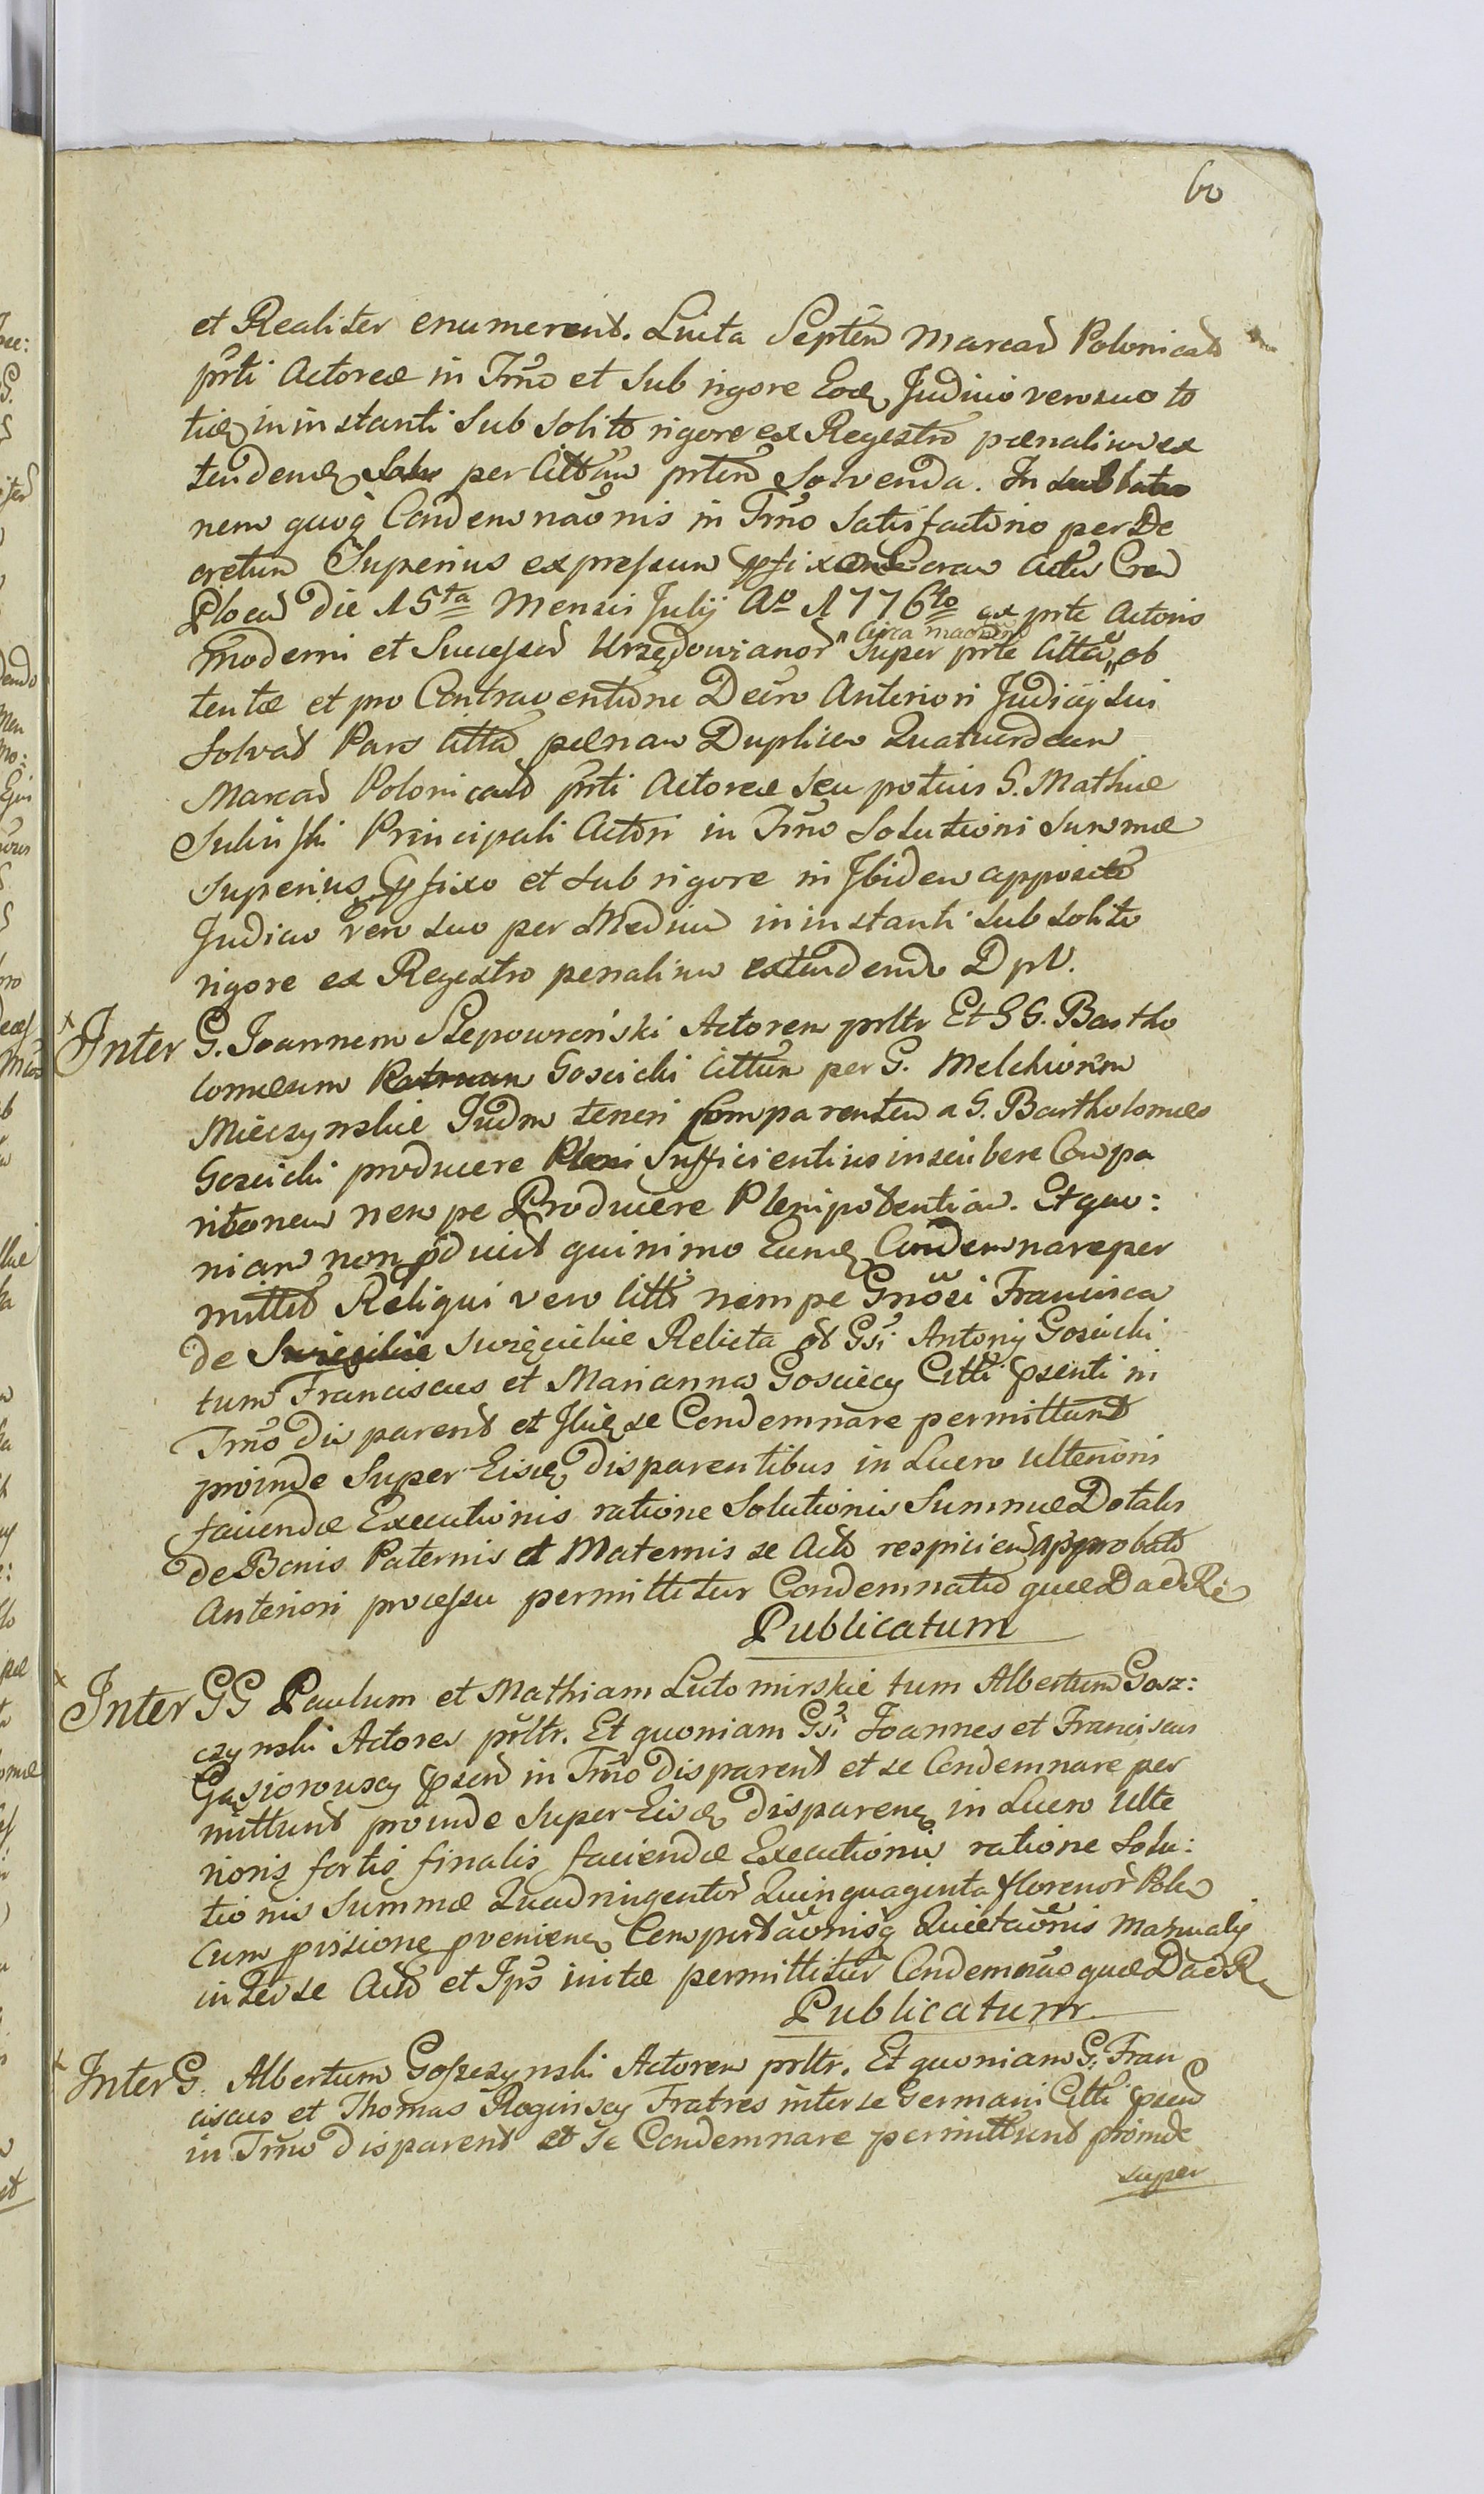 60
et Realiter enumerent. Luita Septem Marcas Polonicas
prti Actoreæ in Trno et Sub rigore Eodq Judicio vero suo to
tidq in instanti Sub Solito rigore ex Regestro pœnalium ex
tendenq per Cittam prtem Solvenda. In sublatio
nem quoq Condemnaonis in Trno Satisfactorio per De
cretum Superius expressum pfixo coram Actis Cren
Plocen Die 15ta Mensis Julij Ao 1776to ex prte Actoris
Circa
moderni et Successor Urzędowianor Super prte Citta ob
tentæ et pro Contraventione Decro Anteriori Judicij Sui
Solvat Pars Citta pœnam Duplicem Quatuordecim
Marcas Polonicas prti Actoreæ Seu potius G. Mathiæ
Suliński Principali Actori in Trno Solutioni Summæ
Superius pfixo et Sub rigore in Ibidem apposito
Judicio vero suo per Medium in instanti sub solito
rigore ex Regestro penalium extendendo D pV.
Inter G. Joannem Slepowroński Actorem prltr Et GG. Bartho
lomeum Goscicki Cittum per G. Melchiorem
Mieczynskie Judm teneri Comparentem a G. Bartholomeo
Goscicki producere Sufficientius inscibere Compa
ritionem nempe Producere Plenipotentiam. Et quo:
niam non pducit quinimo Eundq Condemnare per
mittit Reliqui vero Citti nempe Gnosi Francisca
de Swięcickie Relicta ol Gsi Antonij Goscicki
tum Franciscus et Marianna Gosciccy Citti psenti in
Trno Disparent et Ibiq se Condemnare permittunt
proinde Super Eisdq disparentibus in Lucro Ulteriori
faciendæ Executionis ratione Solutionis Summæ Dotalis
de Bonis Paternis et Maternis se Acto respicien approbato
Anteriori processu permittitur Condemnatio quæ DaedRe
Publicatum
Inter GG Paulum et Mathiam Lutomirskie tum Albertum Gosz:
czynski Actores prltr. Et quoniam Gsi Joannes et Franciscus
Gąsiorowscy psen in Trno Disparent et se Condemnare per
mittunt proinde Super Eisdq disparenq in Lucro Ulte
rioris fortis finalis faciendæ Executionis ratione Solu:
tionis Summæ Quadringentor Quinquaginta florenor Polo
cum pvisione pvenienq Computaonisq Quietaonis Manualis
inter se Acto et Ips initæ permittitur Condemnao quæ DaedR
Publicatum
Inter G. Albertum Goszczynski Actorem prltr. Et quoniam G. Fran
ciscus et Thomas Roginscy Fratres inter se Germani Citti psen
in Trno disparent et se Condemnare permittunt proinde
super